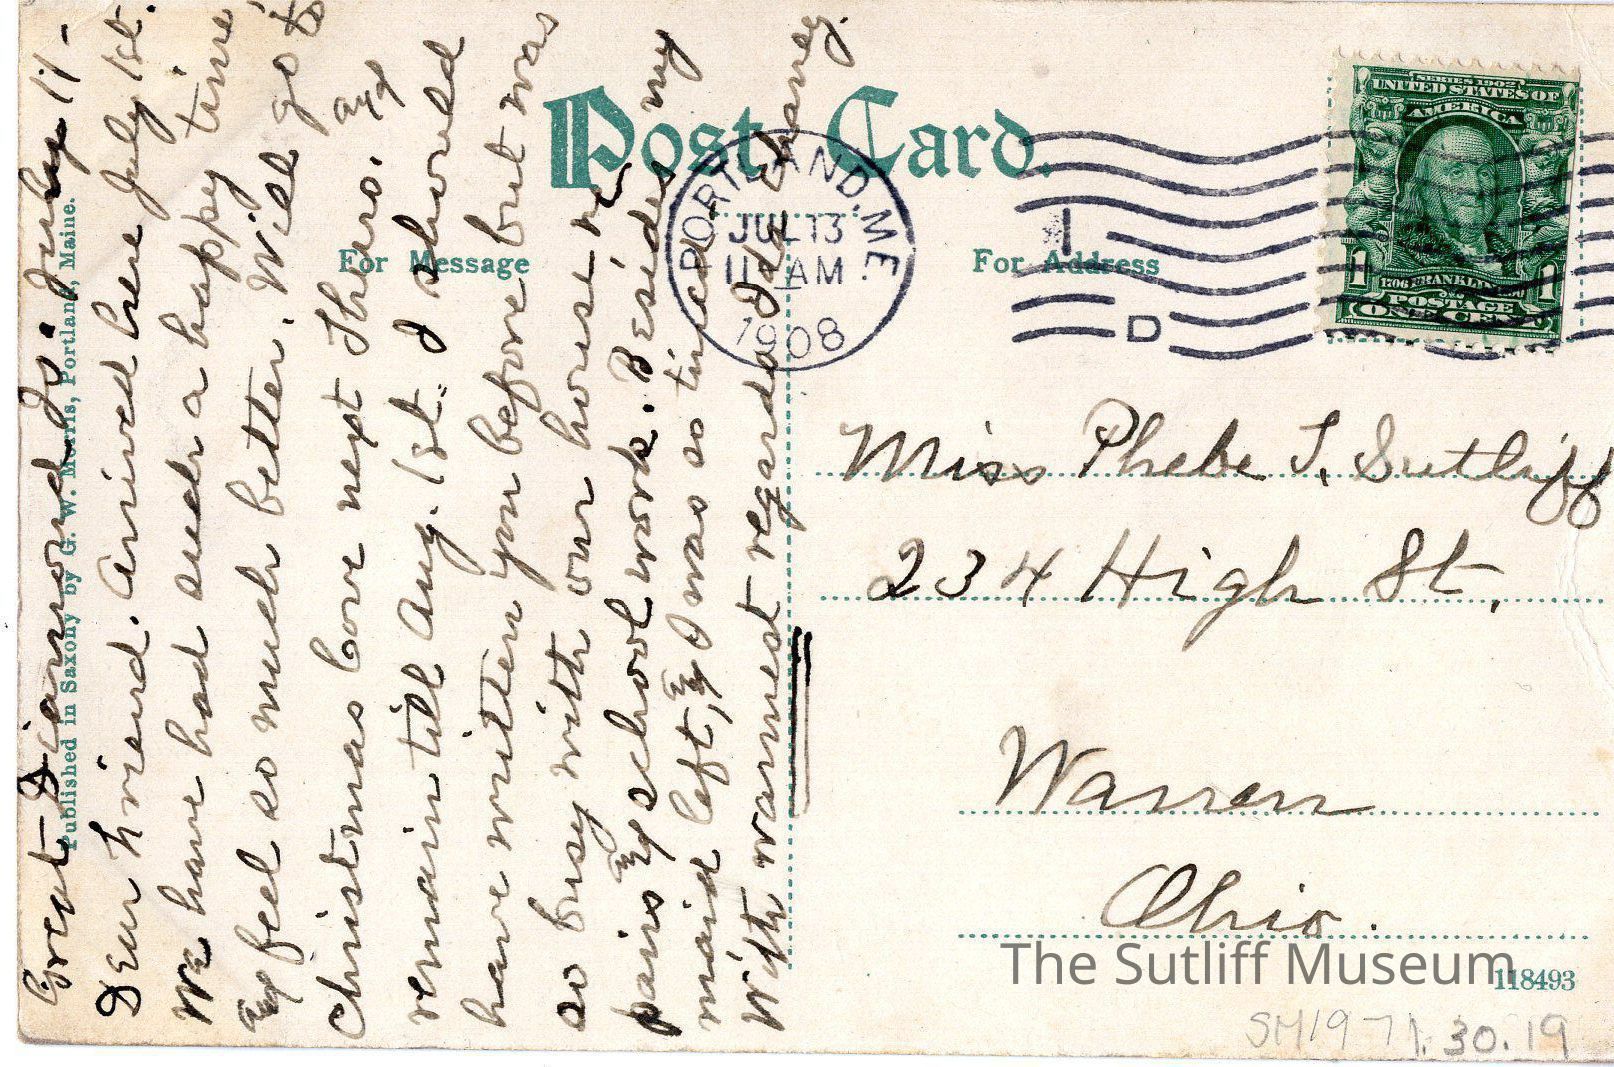 Great Diamond Is. July 11-
Dear Friend. Arrived here July 1st.
We have had such a happy time
and feel so much better. Will go to
Christmas Cove next Thurs. and
remain till Aug. 1st. I should
have written you before but was
so busy with our house re
pairs and school work. Besides my
maid left, and I was so tired
With warmest regards Ida Chaney.
Published in Saxony by G. W. Morris, Portland, Maine.
Post Card.
For Message
For Address
PORTLAND, ME.
JUL 13
11 AM
1908
1
D
SERIES 1902
UNITED STATES OF
AMERICA
1706 FRANKLIN 1790
1 POSTAGE 1
ONE CENT
Miss Phebe T. Sutliff
234 High St.
Warren
Ohio.
The Sutliff Museum
118493
SM1971.30.19